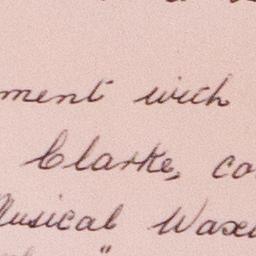 ment with
Clarke, co
Musical Wax